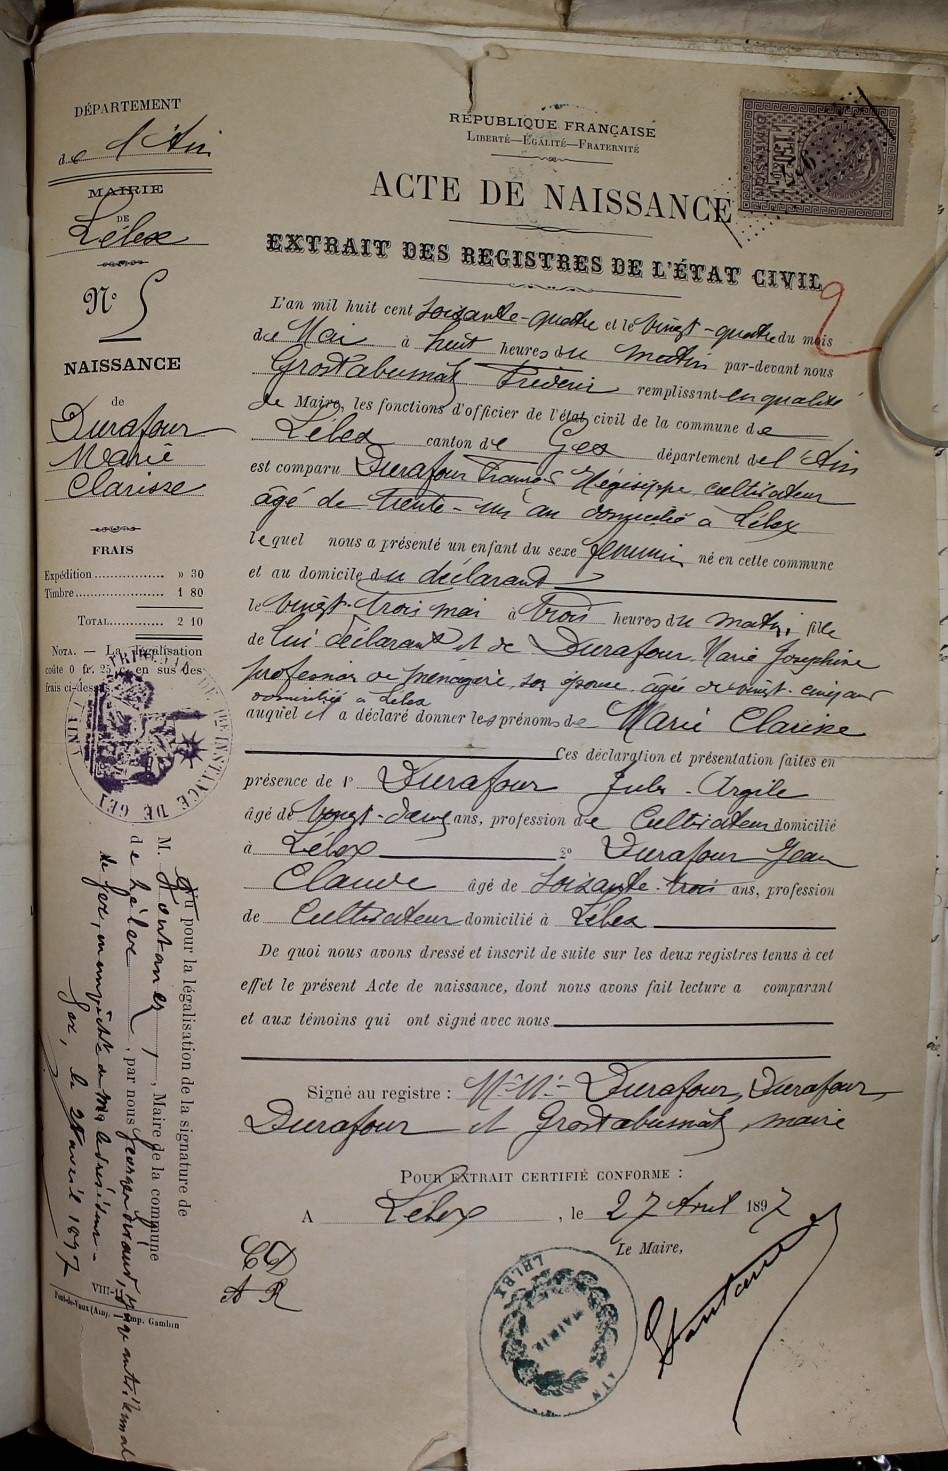 DÉPARTEMENT
de l'Ain
MAIRIE
DE
Lélex
N° 5
NAISSANCE
de
Durafour
Marie
Clarisse
FRAIS
Expédition ................ » 30
Timbre ...................... 1 80
TOTAL ............ 2 10
NOTA. — La légalisation
coûte 0 fr. 25 c. en sus des
frais ci-dessus.
RÉPUBLIQUE FRANÇAISE
LIBERTÉ—EGALITÉ—FRATERNITÉ
ACTE DE NAISSANCE
EXTRAIT DES REGISTRES DE L'ÉTAT CIVIL
2
L'an mil huit cent soixante-quatre et le vingt-quatre du mois
de Mai à huit heures du matin par-devant nous
Grostabussiat remplissant en qualité
de Maire, les fonctions d'officier de l'état civil de la commune de
Lélex canton de Gex département de l'Ain
est comparu Durafour François Hégésippe cultivateur
âgé de trente-un an domicilié à Lélex
lequel nous a présenté un enfant du sexe féminin né en cette commune
et au domicile du déclarant
le vingt-trois mai à trois heures du matin, fille
de lui déclarant et de Durafour Marie Josephine
profession de ménagère, son épouse âgée de vingt-cinq ans
domiciliée à Lélex
auquel il a déclaré donner les prénoms de Marie Clarisse
Ces déclaration et présentation faites en
présence de 1° Durafour Jules
âgé de vingt-deux ans, profession de Cultivateur domicilié
à Lélex 2° Durafour Jean
Claude âgé de soixante-trois ans, profession
de Cultivateur domicilié à Lélex
De quoi nous avons dressé et inscrit de suite sur les deux registres tenus à cet
effet le présent Acte de naissance, dont nous avons fait lecture a comparant
et aux témoins qui ont signé avec nous
Signé au registre : Durafour, Durafour,
Durafour et Grostabussiat, maire
POUR EXTRAIT CERTIFIÉ CONFORME :
A Lélex, le 27 Avril 1897
Le Maire,
CD
AR
MAIRIE
LÉLEX
AIN
Vu pour la légalisation de la signature de
M. , Maire de la commune
de Lélex, par nous
de Gex,
Gex, le avril 1897
VIII-
Pont-de-Vaux (Ain). — Imp. Gambin
INSTANCE DE GEX